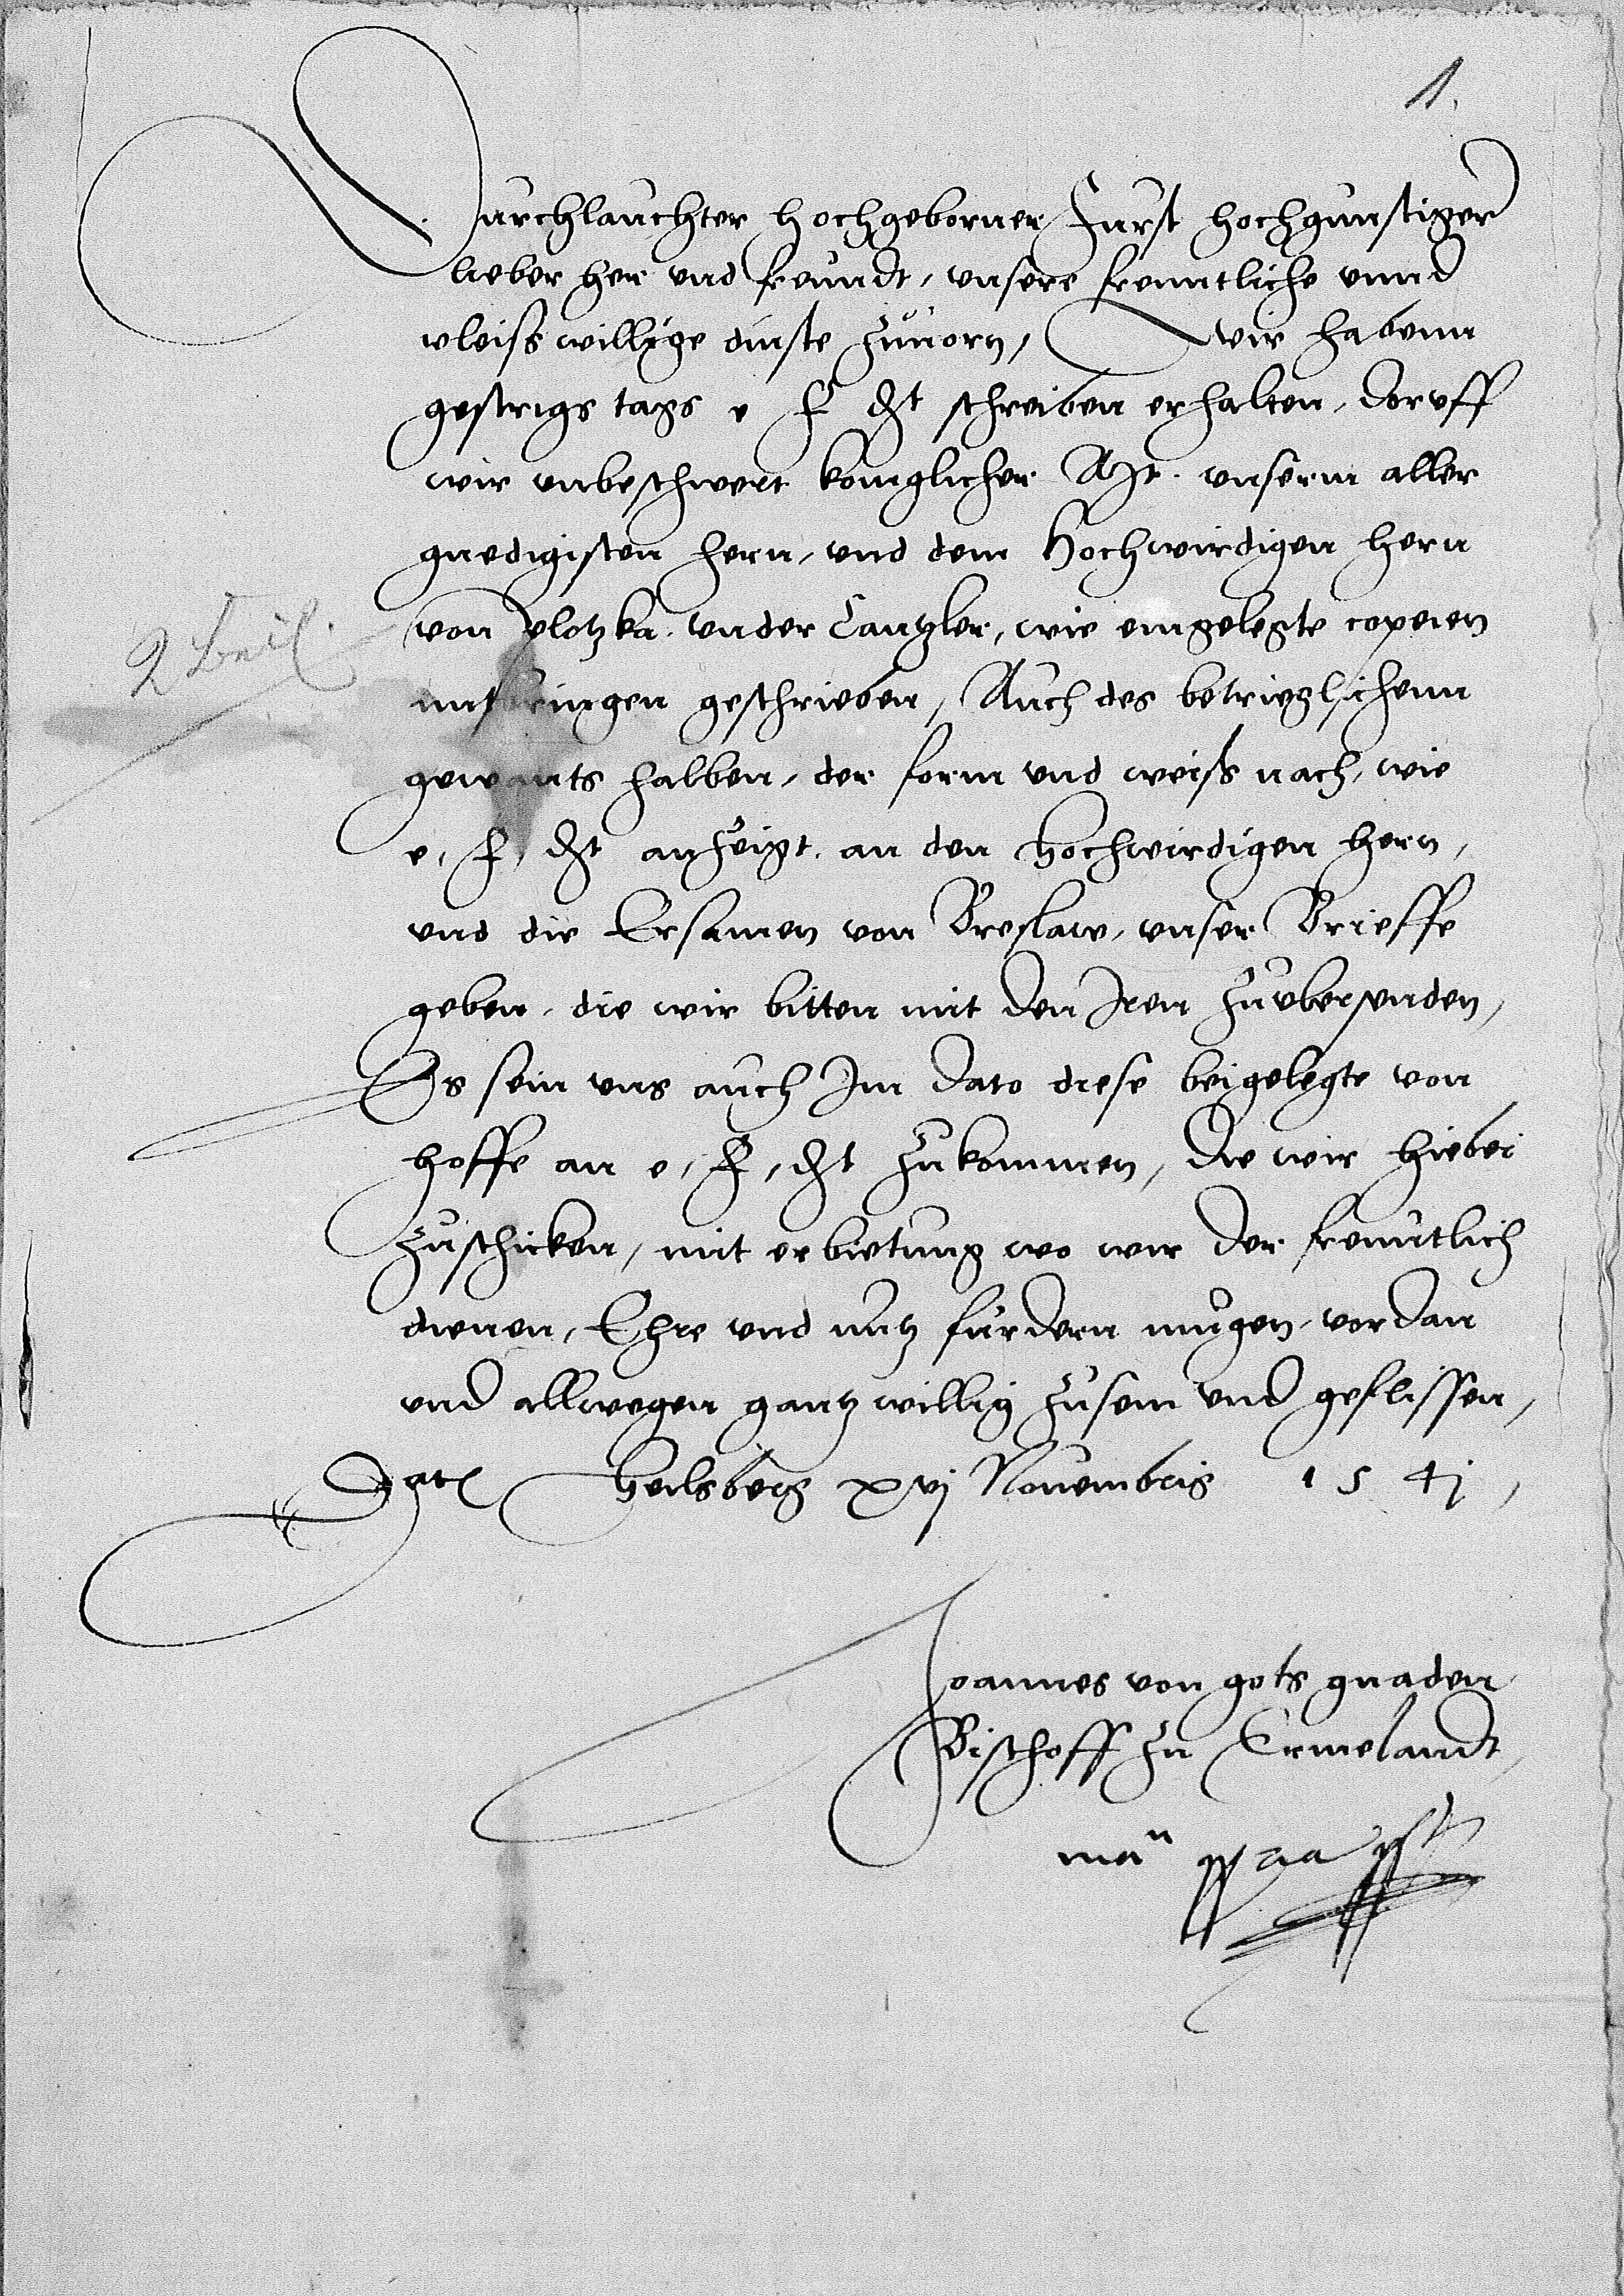 1.
Durchlauchter hochgeborner Furst hochgunstiger
lieber her und freundt, unsere freuntliche unnd
vleiss willige dinste zuuorn, Wir habenn
gestrigs tags e f dht schreiben erhalten, doruff
wir unbeschwert koniglicher Mt. unserm aller
gnedigisten hern, und dem hochwirdigen hern
von Plotzka under Cantzler, wie eingelegte copeien
2 Beil.
mitbringen geschrieben, Auch des betrieglichenn
gewants halben, der form und weiss nach, wie
e, f, dht anzeigt, an den hochwirdigen hern,
und die Ersamen von Breslaw, unser Brieffe
geben, die wir bitten mit den Iren zuubersenden,
Es sein uns auch Im dato diese beigelegte von
hoffe an e, f, dht zukommen, die wir hiebei
zuschicken, mit erbietung wo wir der freuntlich
dienen, Ehre und nutz furdern mugen, vordan
und allwegen gantz willig zusein und geflissen,
Dat Heilsberg xvj Nouembris 154j,
Joannes von gots gnaden
Bischoff zu Ermelandt,